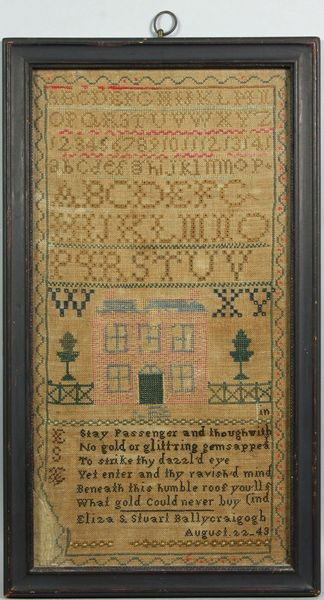 ABCDEFGHIJKLMN
OPQRSTUVWXYZ
1234567891011121314
abcdefghijklmnop
ABCDEFG
HIJKLMNO
PQRSTUV
W XY
in
Stay Passenger and though with
No gold or glittring gems appea
To strike thy dazzl'd eye
Yet enter and thy ravish'd mind
Beneath this humble roof you'll f
What gold Could never buy (ind
Eliza S Stuart Ballycraigogh
August 22 43